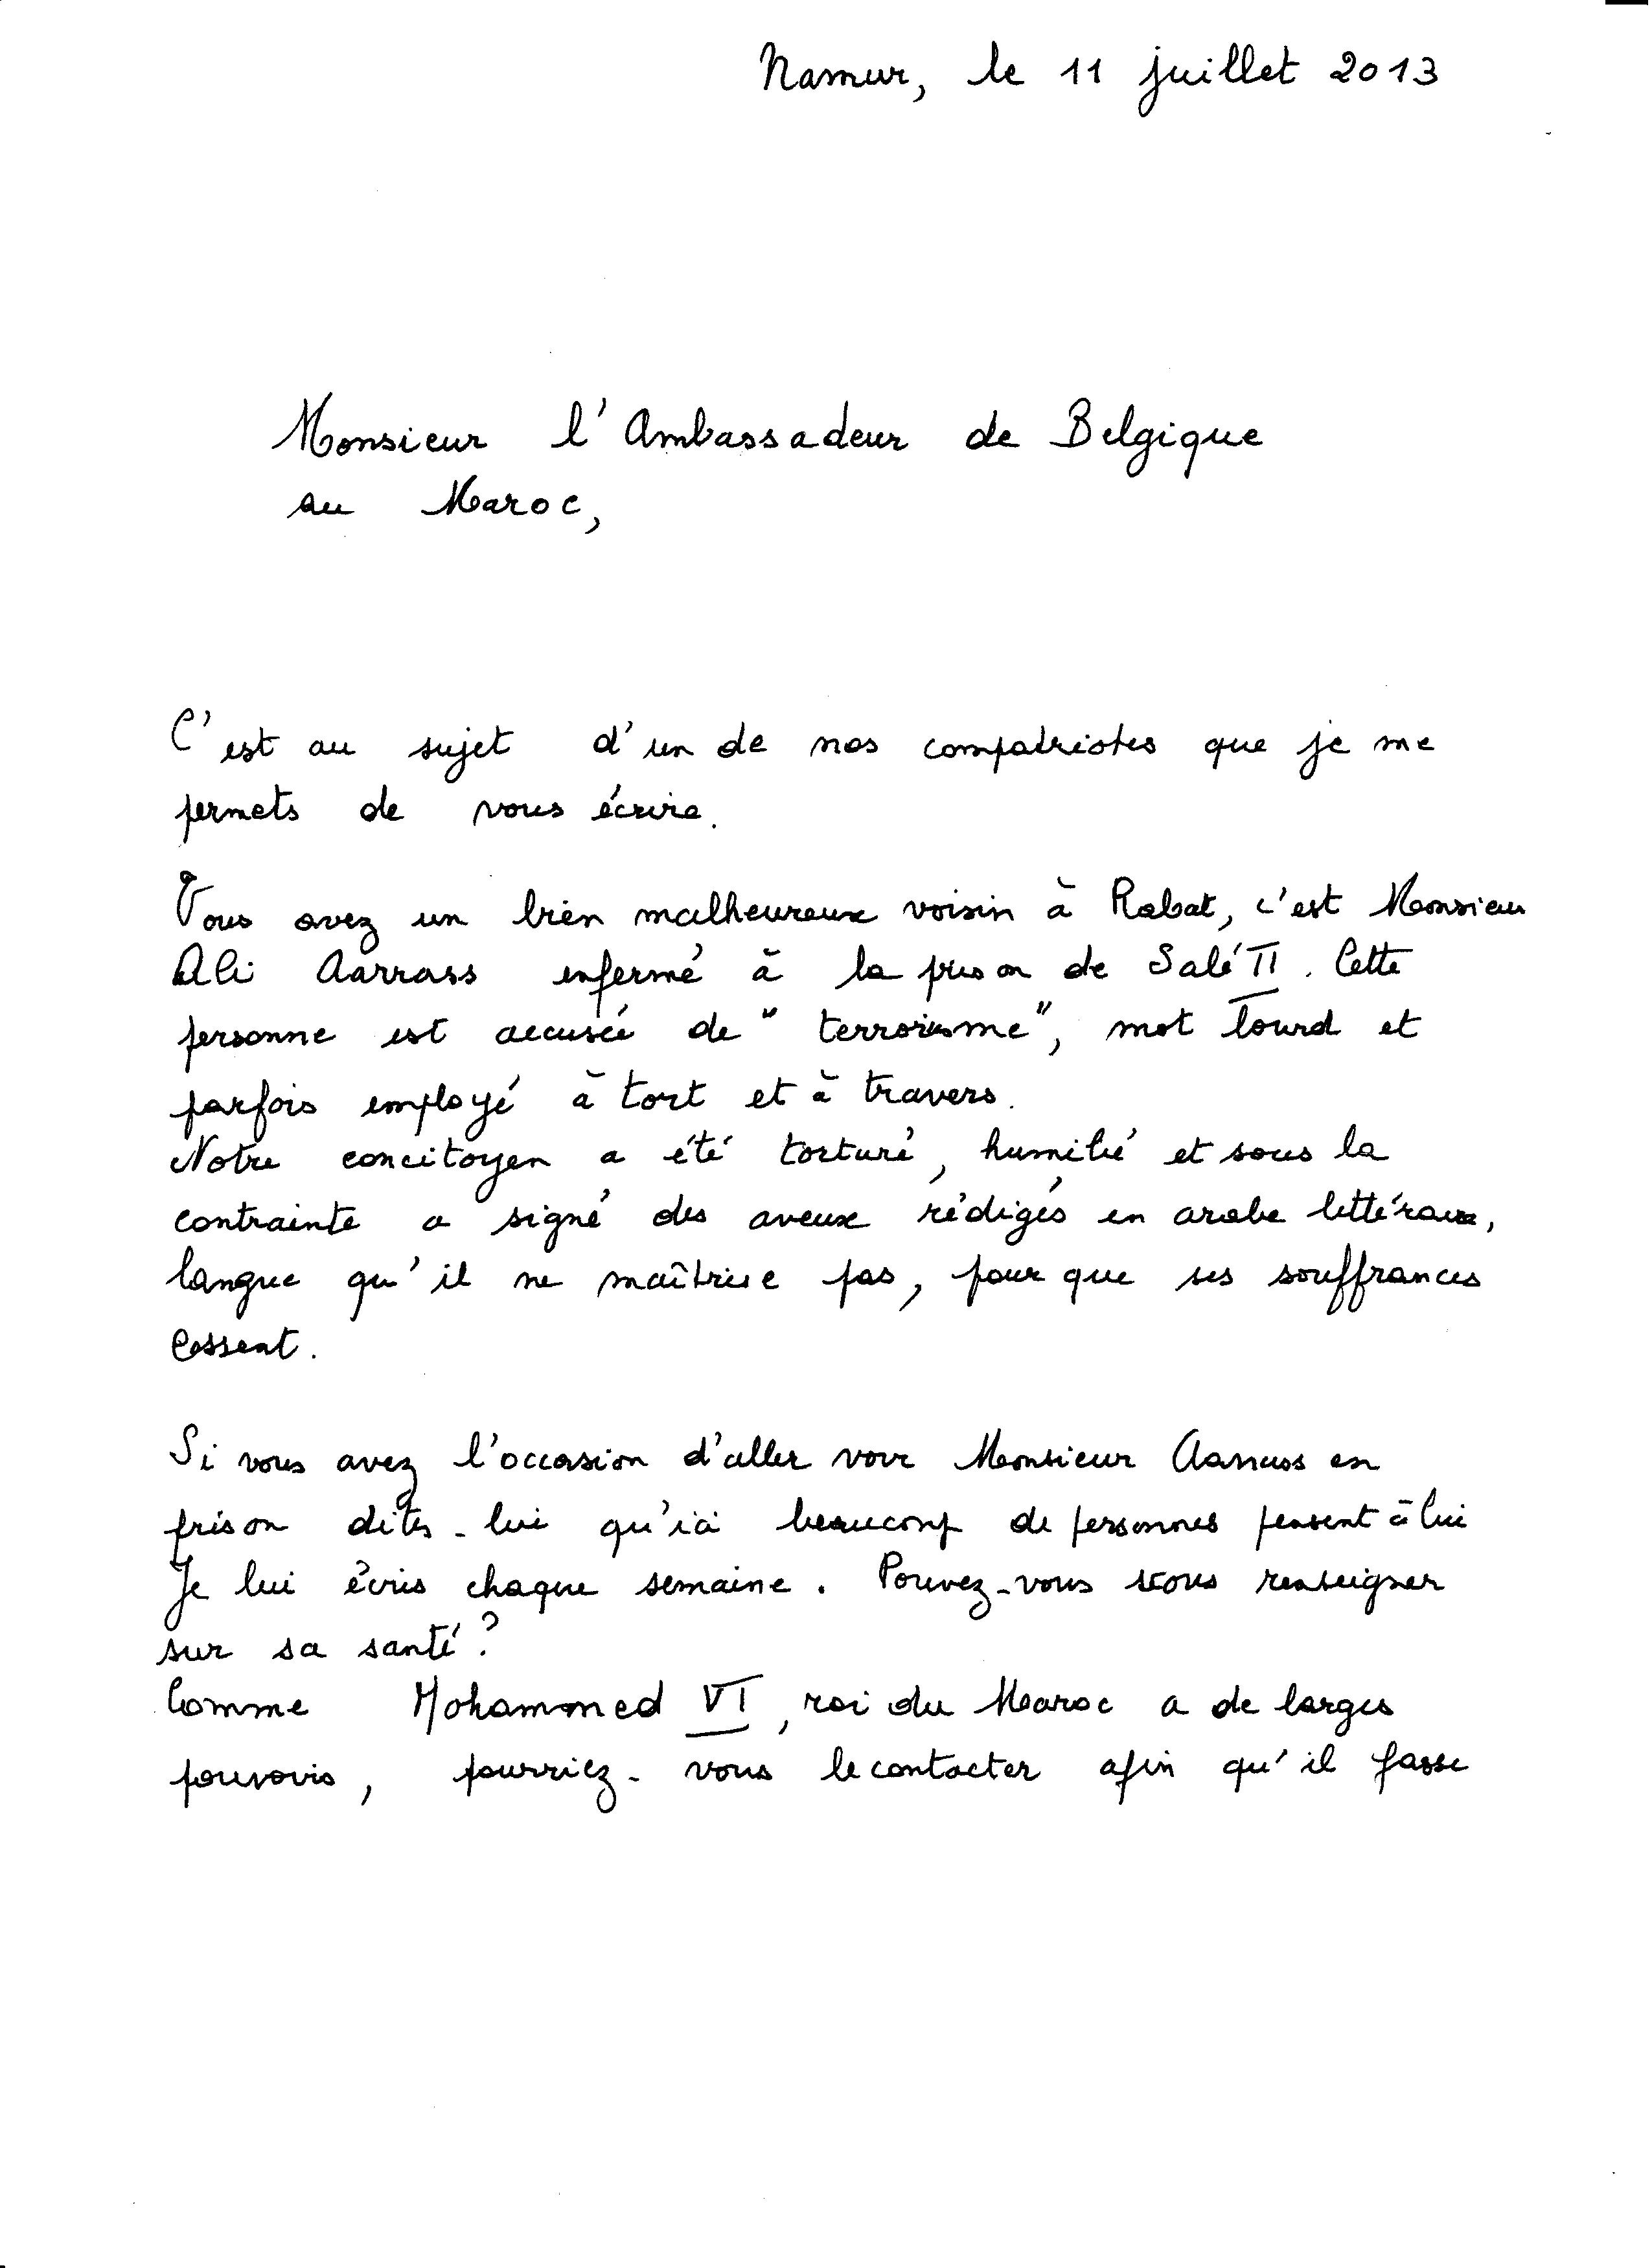 Namur, le 11 juillet 2013
Monsieur l'Ambassadeur de Belgique
au Maroc,
C'est au sujet d'un de nos compatriotes que je me
permets de vous écrire.
Vous avez un bien malheureux voisin à Rabat, c'est Monsieur
Ali Aarrass enfermé à la prison de Salé II. Cette
personne est accusée de "terrorisme", mot lourd et
parfois employé à tort et à travers.
Notre concitoyen a été torturé, humilié et sous la
contrainte a signé des aveux rédigés en arabe littéraire,
langue qu'il ne maîtrise pas, pour que ses souffrances
cessent.
Si vous avez l'occasion d'aller voir Monsieur Aarrass en
prison dites-lui qu'ici beaucoup de personnes pensent à lui
Je lui écris chaque semaine. Pouvez-vous nous renseigner
sur sa santé?
Comme Mohammed VI, roi du Maroc a de larges
pouvoirs, pourriez-vous le contacter afin qu'il fasse